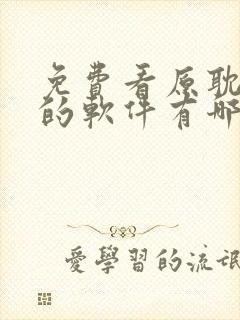 免費看原耽
的軟件有哪
愛學習的流氓